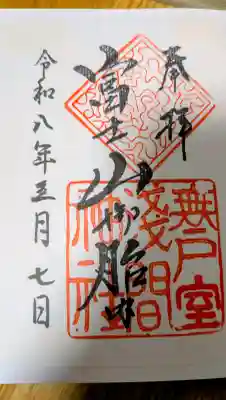 奉拝
富士山御胎内
無戸室
浅間
神社
令和八年五月七日